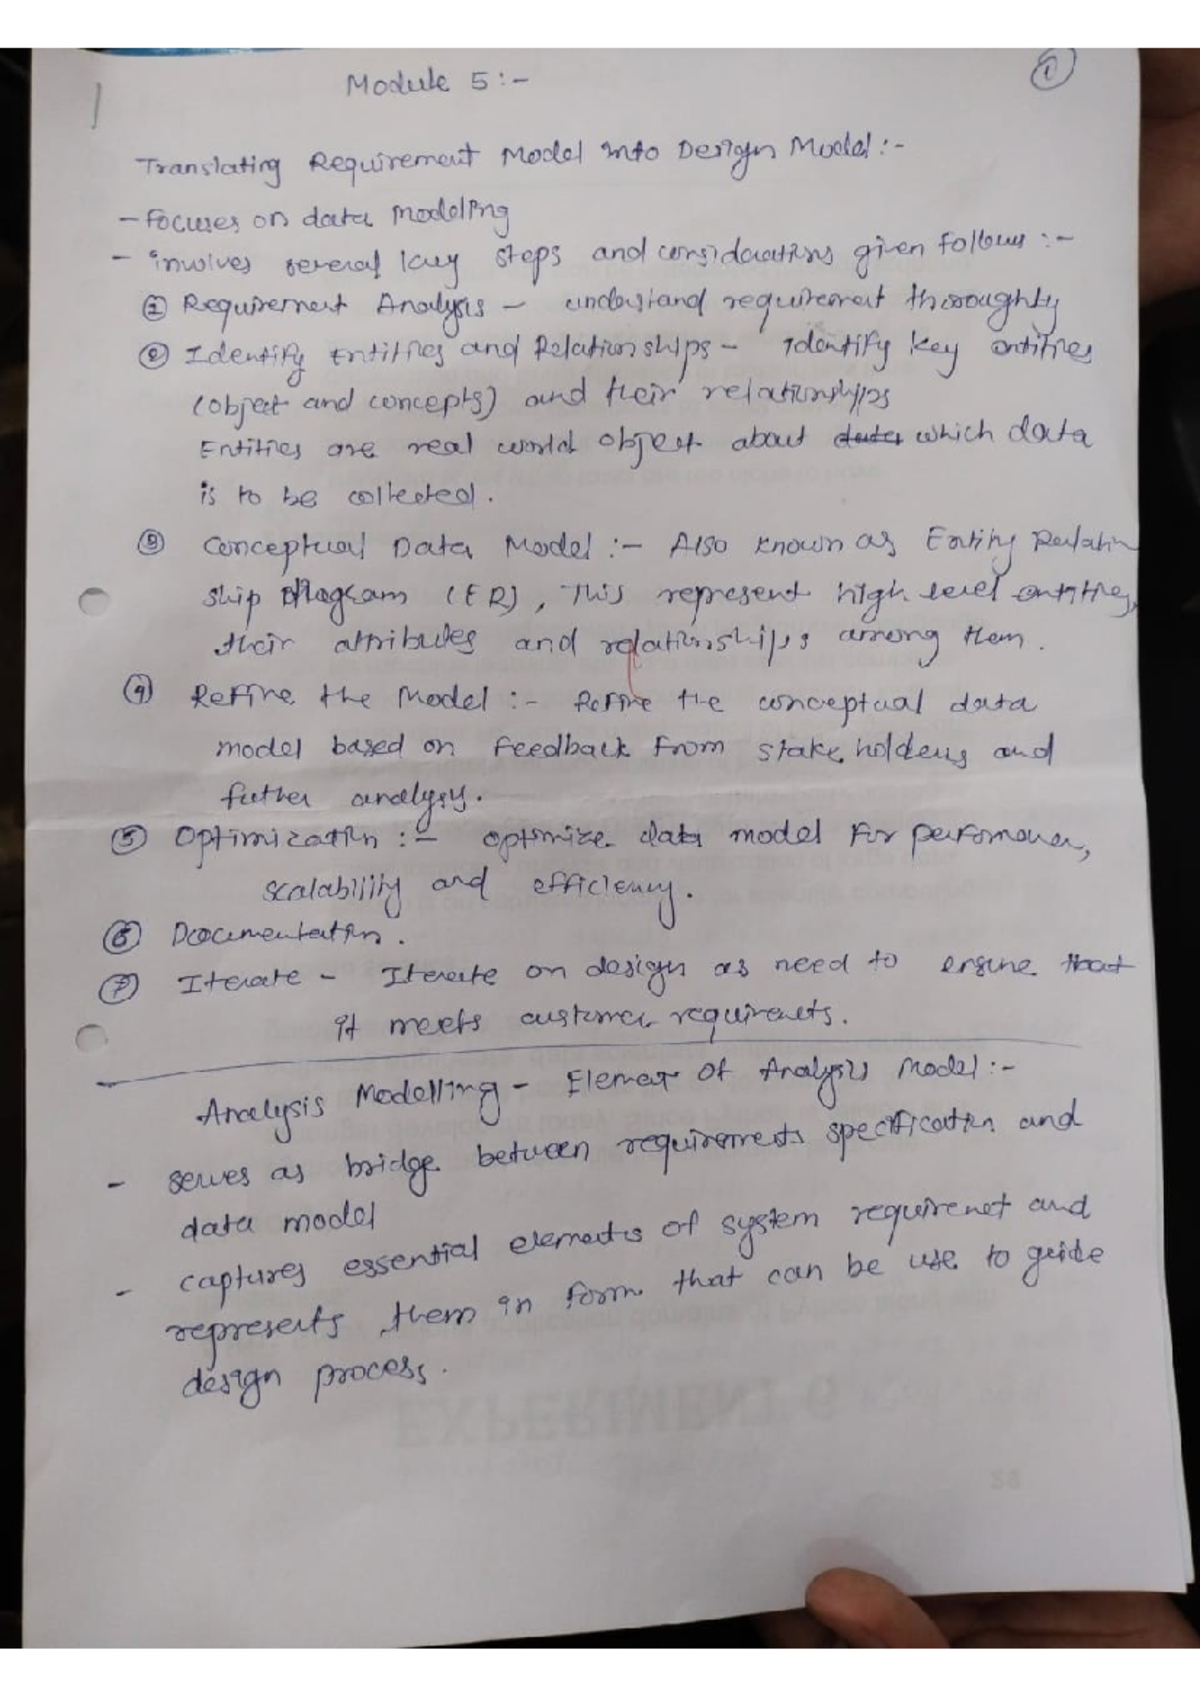 Module 5:-
1
Translating Requirement Model into Design Model:-
- Focuses on data modelling
- involves several key steps and considerations given follows :-
① Requirement Analysis - understand requirement thoroughly
② Identify Entities and Relationships - Identify key entities
(object and concepts) and their relationships
Entities are real world object about data which data
is to be collected.
③ Conceptual Data Model :- Also known as Entity Relation
ship Diagram (ER), This represent high level entities,
their attributes and relationships among them.
④ Refine the Model :- Refine the conceptual data
model based on feedback from stake holders and
futher analysy.
⑤ Optimization :- optimize data model for performance,
scalability and efficiency.
⑥ Documentation.
⑦ Iterate - Iterate on design as need to ensure that
it meets customer requirements.
Analysis Modelling - Element of Analysis Model :-
- serves as bridge between requirements specification and
data model
- captures essential elements of system requirement and
represents them in form that can be use to guide
design process.
EXPERIMENT 6